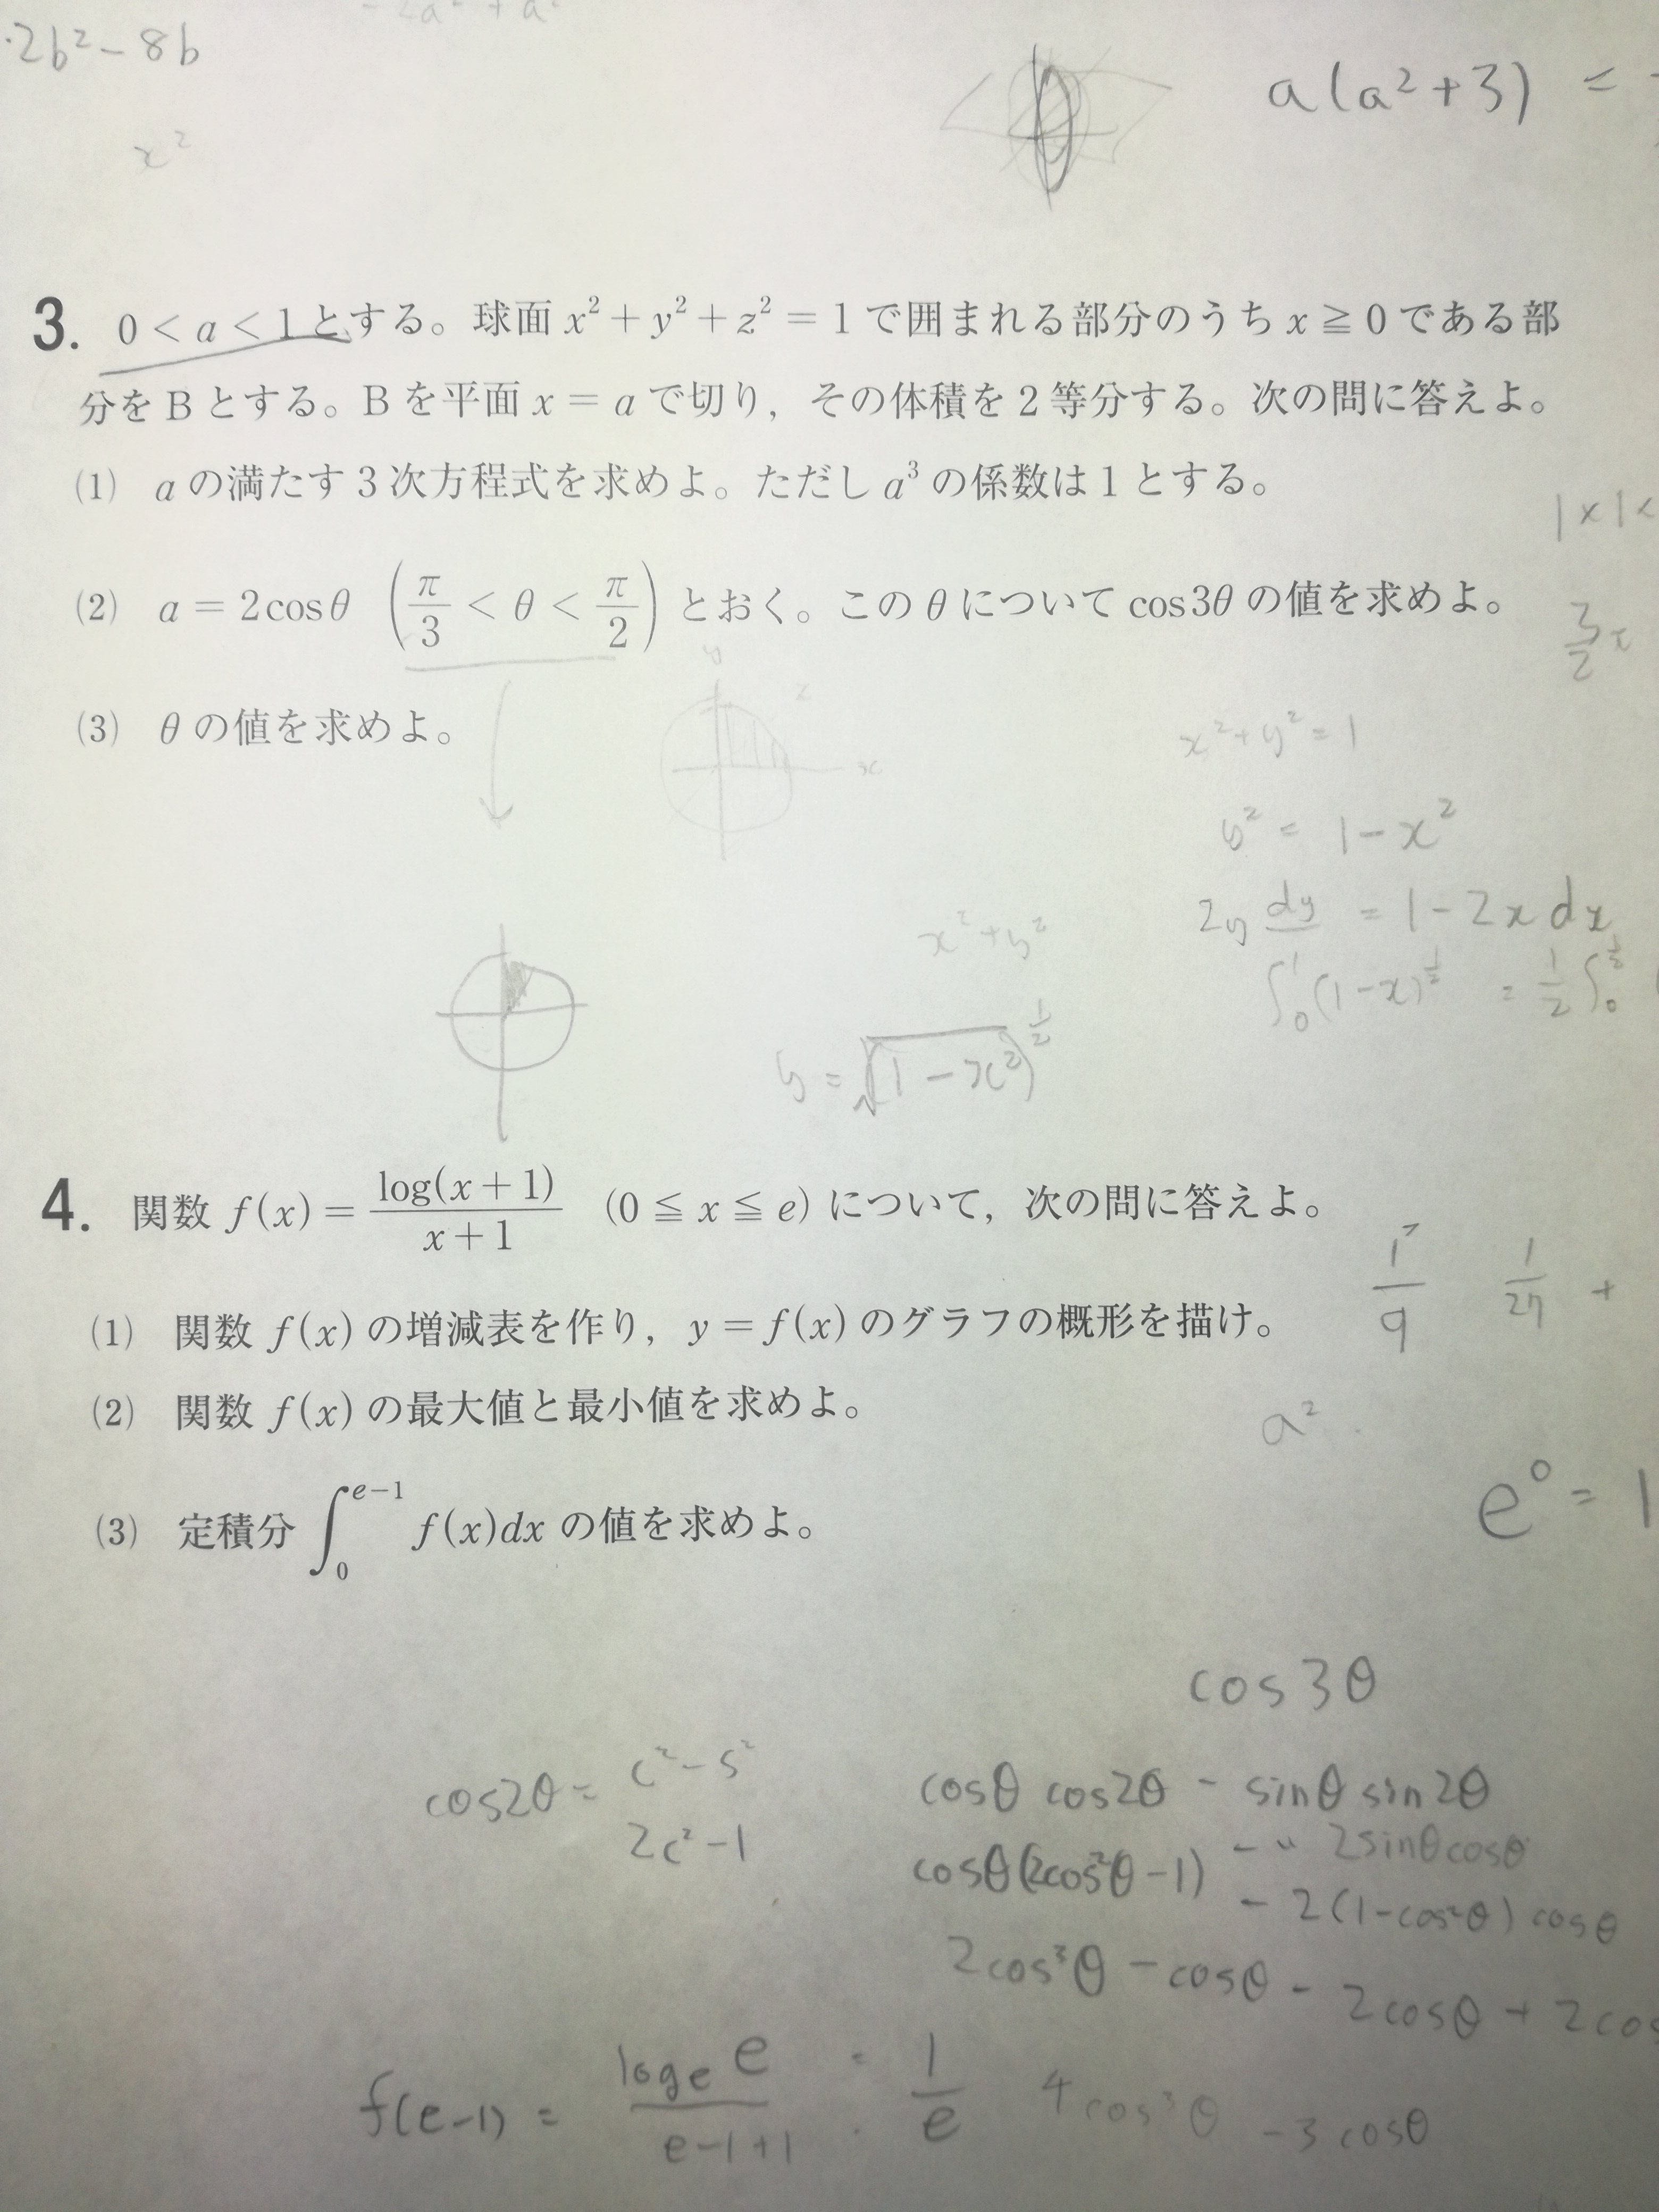 -2a² + a²
2b² - 8b
a(a² + 3) =
x²
3. 0 < a < 1 とする。球面 x² + y² + z² = 1 で囲まれる部分のうち x ≧ 0 である部
分を B とする。B を平面 x = a で切り，その体積を 2 等分する。次の問に答えよ。
(1) a の満たす 3 次方程式を求めよ。ただし a³ の係数は 1 とする。
(2) a = 2cosθ (π/3 < θ < π/2) とおく。この θ について cos3θ の値を求めよ。
3/2
(3) θ の値を求めよ。
y
z
x
x² + y² = 1
y² = 1 - x²
2y dy = 1 - 2x dx
x² + y²
∫₀¹ (1 - x)^{1/2} = 1/2 ∫₀
y = √(1 - x²)^{1/2}
4. 関数 f(x) = log(x + 1)/(x + 1) (0 ≦ x ≦ e) について，次の問に答えよ。
1/9 1/27 +
(1) 関数 f(x) の増減表を作り，y = f(x) のグラフの概形を描け。
(2) 関数 f(x) の最大値と最小値を求めよ。
a²
e⁰ = 1
(3) 定積分 ∫₀^{e-1} f(x)dx の値を求めよ。
cos3θ
cos2θ = c² - s²
2c² - 1
cosθ cos2θ - sinθ sin2θ
cosθ(2cos²θ - 1) - 〃 2sinθcosθ
- 2(1 - cos²θ) cosθ
2cos³θ - cosθ - 2cosθ + 2cos
f(e-1) = logₑ e/(e-1+1) = 1/e
4cos³θ - 3cosθ